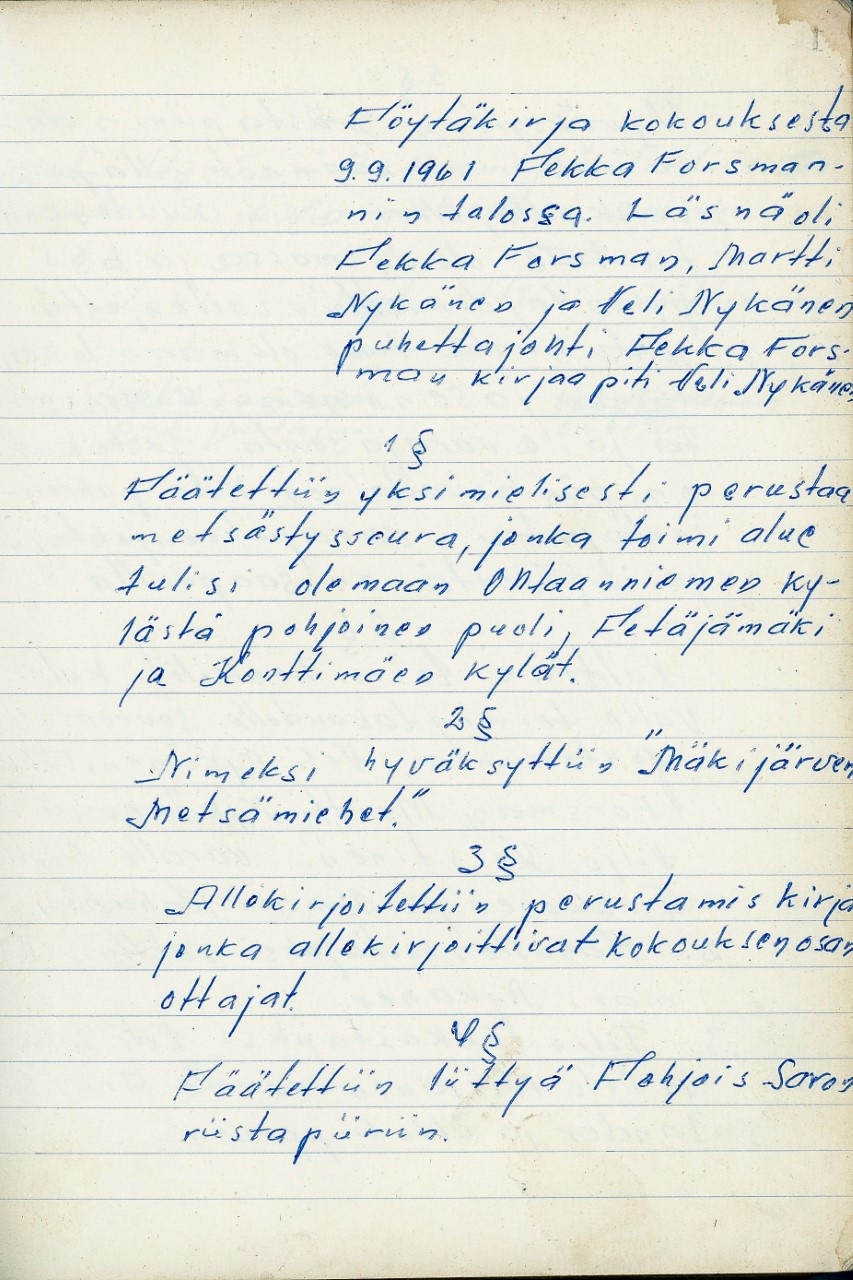 1
Pöytäkirja kokouksesta
9.9.1961 Pekka Forsman-
nin talossa. Läsnä oli
Pekka Forsman, Martti
Nykänen ja Veli Nykänen
puhetta johti Pekka Fors-
man kirjaa piti Veli Nykänen
1 §
Päätettiin yksimielisesti perustaa
metsästysseura, jonka toimi alue
tulisi olemaan Ohtaanniemen ky-
lästä pohjoinen puoli, Petäjämäki
ja Konttimäen kylät.
2 §
Nimeksi hyväksyttiin "Mäkijärven
Metsämiehet."
3 §
Allekirjoitettiin perustamis kirja
jonka allekirjoittivat kokouksen osan
ottajat.
4 §
Päätettiin liittyä Pohjois Savon
riista piiriin.